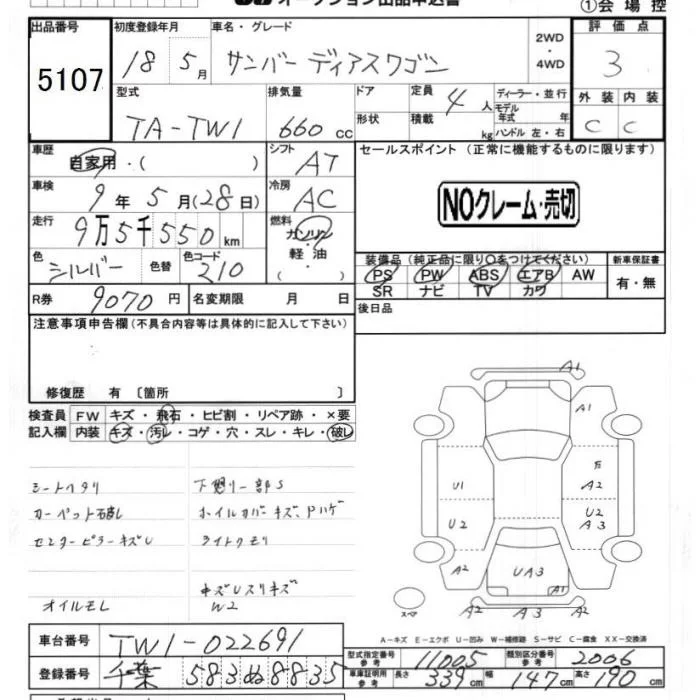 ①会場控
出品番号
5107
初度登録年月
18 5月
車名・グレード
サンバー ディアスワゴン
2WD
・
4WD
評価点
3
型式
TA-TW1
排気量
660 cc
ドア
形状
定員 4人
積載 kg
ディーラー・並行
モデル年式 年
ハンドル 左・右
外装 内装
C C
車歴
自家用・( )
シフト
AT
セールスポイント (正常に機能するものに限ります)
NOクレーム・売切
車検
9年5月(28日)
冷房
AC
走行
9万5千550km
燃料
ガソリン
・
軽・油
( )
色
シルバー
色替
色コード
210
装備品(純正品に限り○をつけてください)
PS PW ABS エアB AW
SR ナビ TV カワ
新車保証書
有・無
R券 9070円
名変期限 月 日
後日品
注意事項申告欄(不具合内容等は具体的に記入して下さい)
修復歴 有 〔箇所 〕
検査員 FW キズ・飛石・ヒビ割・リペア跡・×要
記入欄 内装 キズ・汚レ・コゲ・穴・スレ・キレ・破レ
シートヘタリ
カーペット破レ
センターピラーキズU
オイルモレ
下廻り一部S
ホイルカバーキズ、Pハゲ
ライトクモリ
W2
A1
A1
U1
A2
U2
U2
A3
A2
UA3
A1
A2
A2
A3
A2
スペア
A-キズ E-エクボ U-凹み W-補修跡 S-サビ C-腐食 XX-交換済
車台番号 TW1-022691
登録番号 千葉 583ぬ8835
型式指定番号 参考 11005
類別区分番号 参考 2006
車庫証明用 参考 長さ 339cm 幅 147cm 高さ 190cm